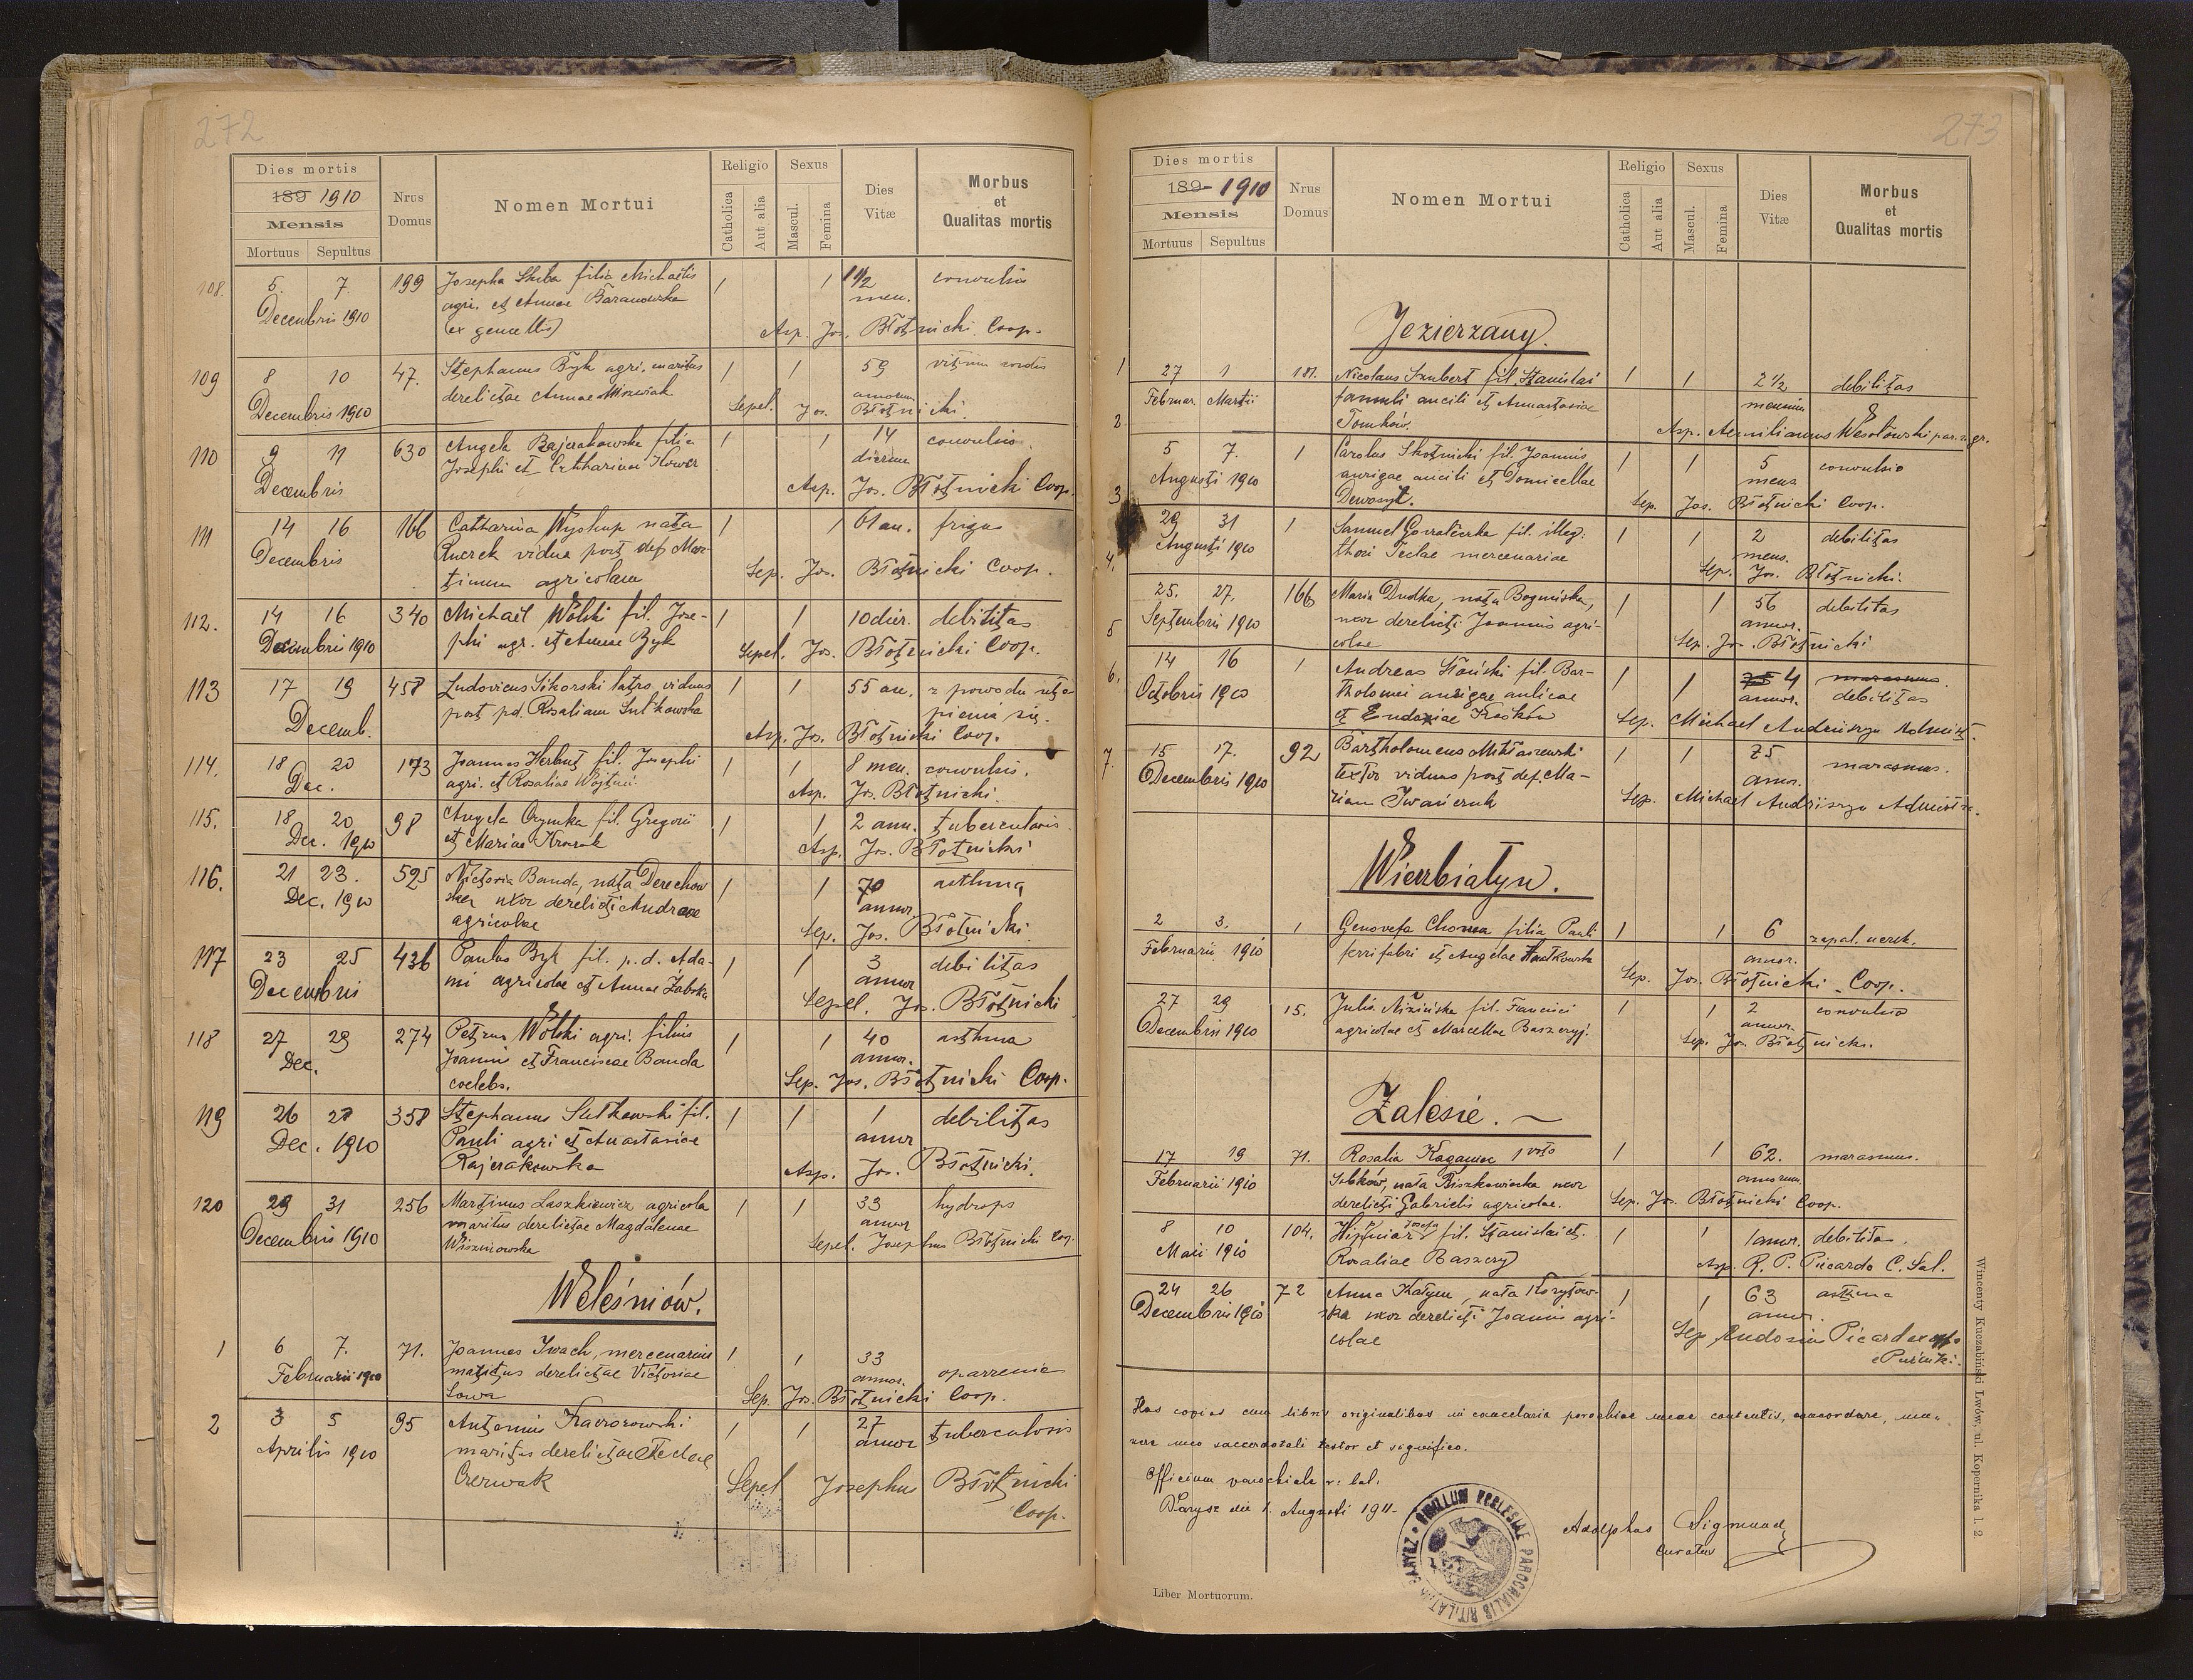 272
Dies mortis
189 1910
Mensis
Mortuus Sepultus
Nrus Domus
Nomen Mortui
Religio
Catholica
Aut alia
Sexus
Mascul.
Femina
Dies Vitæ
Morbus et Qualitas mortis
108. 5. 7 199 Josepha Skiba filia Michaelis 1 1 1 1/2 convulsio
Decembris 1910 agri. et Annae Baranowska men.
(ex gemellis) Asp. Jos. Błotnicki Coop.
109 8 10 47. Stephanus Byk agri. maritus 1 1 59 vitium cordis
Decembris 1910 derelictae Annae annorum
Sepel. Jos. Błotnicki.
110 9 11 630 Angela Bajerakowska filia 1 1 14 convulsio
Decembris Josephi et Catharinae Kower dierum
Asp. Jos. Błotnicki Coop.
111 14 16 166 Catharina Wyskup nata 1 1 61 an. frigus
Decembris vidua post def. Mar-
tinum agricolam Sep. Jos. Błotnicki Coop.
112. 14 16 340 Michael Wolski fil. Jose- 1 1 10 dier. debilitas
Decembris 1910 phi agr. et Annae Byk Sepel. Jos. Błotnicki Coop.
113 17 19 458 Ludovicus Sikorski viduus 1 1 55 an. z powodu uto-
Decemb. post pd. Rosaliam Sutkowska pienia się.
Asp. Jos. Błotnicki Coop.
114. 18 20 173 Joannes Herbut fil. Josephi 1 1 8 men. convulsio.
Dec. agri. et Rosaliae Asp. Jos. Błotnicki.
115. 18 20 98 Angela fil. Gregorii 1 1 2 ann. tuberculosis
Dec. 1910 et Mariae Asp. Jos. Błotnicki
116. 21 23. 525 Victoria Banda, nata Derechow 1 1 70 asthma
Dec. 1910 ska uxor derelicti Andreae annor
agricolae Sep. Jos. Błotnicki
117 23 25 436 Paulus Byk fil. p. d. Ada- 1 1 3 debilitas
Decembris mi agricolae et Annae Żabska annor
Sepel. Jos. Błotnicki
118 27 29 274 Petrus Wolski agri. filius 1 1 40 asthma
Dec. Joannis et Franciscae Banda annor.
coelebs. Sep. Jos. Błotnicki Coop.
119 26 28 358 Stephanus Sutkowski fil. 1 1 1 debilitas
Dec. 1910 Pauli agri et Anastasiae annor
Rajerakowska Asp. Jos. Błotnicki.
120 29 31 256 Martinus Laszkiewicz agricola 1 1 33 hydrops
Decembris 1910 maritus derelictae Magdalenae annor
Wiszniowska Sepel. Josephus Błotnicki Coop.
Weleśniów.
1 6 7. 71. Joannes Iwach, mercenarius 1 1 33
Februarii 1910 maritus derelictae Victoriae annor. oparzenie
Sowa Sep. Jos. Błotnicki Coop.
2 3 5 95 Antonius 1 1 27 tuberculosis
Aprilis 1910 maritus derelictae Teclae annor
Czerwak Sepel Josephus Błotnicki
Coop.
273
Dies mortis
189- 1910
Mensis
Mortuus Sepultus
Nrus Domus
Nomen Mortui
Religio
Catholica
Aut alia
Sexus
Mascul.
Femina
Dies Vitæ
Morbus et Qualitas mortis
Jezierzany.
1 27 1 181. Nicolaus Szubert fil. Stanislai 1 1 2 1/2 debilitas
Februar. Martii famuli et Anastasiae mensium
Tomków. Asp. Aemilianus Wesołowski par. r. gr.
2 5 7. 1 Carolus Skotnicki fil. Joannis 1 1 5 convulsio
Augusti 1910 aurigae et Domicellae mens
Sep. Jos. Błotnicki Coop.
3 29 31 1 Samuel fil. illeg: 1 1 2 debilitas
Augusti 1910 thori Teclae mercenariae mens.
Sep. Jos. Błotnicki.
4. 25. 27. 166 Maria Dudka, nata Bogucka, 1 1 56 debilitas
Septembris 1910 uxor derelicti Joannis agri- annor.
colae Sep. Jos. Błotnicki
5 14 16 1 Andreas fil. Bar- 1 1 75 4 marasmus.
Octobris 1910 tholomei aurigae aulicae annor. debilitas
et Eudoxiae Sep. Michael Andriiszyn Administ.
6.
7. 15 17. 92 Bartholomeus Mikłaszewski 1 1 75 marasmus.
Decembris 1910 textor viduus post def. Ma- annor.
riam Iwańczuk Sep. Michael Andriiszyn Administr.
Wierzbiatyn.
2 3. 1 Genovefa filia Pauli 1 1 6 zapal. nerek.
Februarii 1910 ferrifabri et Angelae annor.
Sep. Jos. Błotnicki Coop.
27 29 15. Julia Nizińska fil. Francisci 1 1 2 convulsio
Decembris 1910 agricolae et Marcellae annor.
Sep. Jos. Błotnicki.
Zalesie. ~
17 19 71. Rosalia Kaganiec 1 voto 1 1 62. marasmus.
Februarii 1910 nata uxor annorum
derelicti Gabrielis agricolae. Sep. Jos. Błotnicki Coop.
8 10 104. Josefa fil. Stanislai et. 1 1 1 annor. debilitas.
Maii 1910 Rosaliae Baszczy Asp. R. P. Piccardo C. Sal.
24 26 72 Anna nata Korytow- 1 1 63 asthma
Decembris 1910 ska uxor derelicti Joannis agri- annor.
colae Sep
Has copias cum libris originalibus in cancelaria parochiae meae contentis, concordare, mu-
nere meo saccerdotali testor et significo.
Officium parochiale r: lat.
Barysz die 1. Augusti 1911-
Adolphus Sigmund
curatus
SIGILLUM ECCLESIAE PAROCHIALIS RIT. LAT. IN BARYSZ
Liber Mortuorum.
Wincenty Kuczabiński Lwów, ul. Kopernika l. 2.